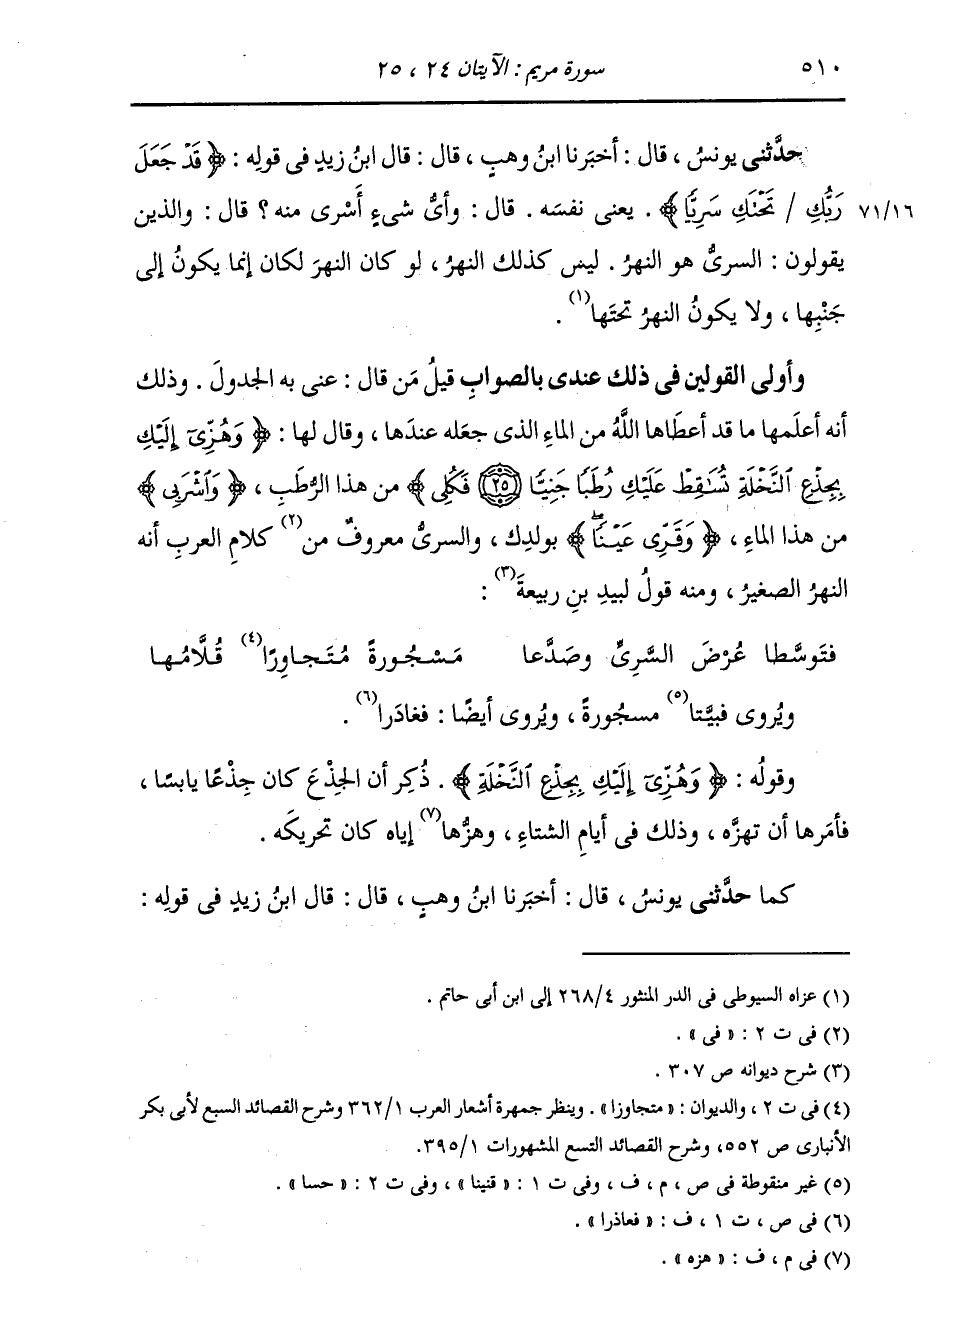 ٥١٠ سورة مريم : الآيتان ٢٤ ، ٢٥
حدَّثني يونسُ ، قال : أخبَرنا ابنُ وهبٍ ، قال : قال ابنُ زيدٍ فى قولِه : ﴿ قَدْ جَعَلَ
٧١/١٦ رَبُّكِ / تَحْتَكِ سَرِيًّا ﴾ . يعنى نفسَه . قال : وأىُّ شىءٍ أَسْرى منه ؟ قال : والذين
يقولون : السرىُّ هو النهرُ . ليس كذلك النهرُ ، لو كان النهرَ لكان إنما يكونُ إلى
جَنْبِها ، ولا يكونُ النهرُ تحتَها(١) .
وأولى القولين فى ذلك عندى بالصوابِ قيلُ مَن قال : عنى به الجدولَ . وذلك
أنه أعلَمها ما قد أعطاها اللَّهُ من الماءِ الذى جعَله عندَها ، وقال لها : ﴿ وَهُزِّىٓ إِلَيْكِ
بِجِذْعِ ٱلنَّخْلَةِ تُسَٰقِطْ عَلَيْكِ رُطَبًا جَنِيًّا ۝٢٥ فَكُلِى ﴾ من هذا الرُّطَبِ ، ﴿ وَٱشْرَبِى ﴾
من هذا الماءِ ، ﴿ وَقَرِّى عَيْنًاۖ ﴾ بولدِك ، والسرىُّ معروفٌ من(٢) كلامِ العربِ أنه
النهرُ الصغيرُ ، ومنه قولُ لبيدِ بنِ ربيعةَ(٣) :
فتَوسَّطا عُرْضَ السَّرِىِّ وصَدَّعا مَسْجُورةً مُتَجاوِرًا(٤) قُلَّامُها
ويُروى فبيَّتا(٥) مسجُورةً ، ويُروى أيضًا : فغادَرا(٦) .
وقولُه : ﴿ وَهُزِّىٓ إِلَيْكِ بِجِذْعِ ٱلنَّخْلَةِ ﴾ . ذُكِر أن الجِذْعَ كان جِذْعًا يابسًا ،
فأمَرها أن تهزَّه ، وذلك فى أيامِ الشتاءِ ، وهزُّها(٧) إياه كان تحريكَه .
كما حدَّثنى يونسُ ، قال : أخبَرنا ابنُ وهبٍ ، قال : قال ابنُ زيدٍ فى قولِه :
(١) عزاه السيوطى فى الدر المنثور ٢٦٨/٤ إلى ابن أبى حاتم .
(٢) فى ت ٢ : « فى » .
(٣) شرح ديوانه ص ٣٠٧ .
(٤) فى ت ٢ ، والديوان : « متجاوزا » . وينظر جمهرة أشعار العرب ٣٦٢/١ وشرح القصائد السبع لأبى بكر
الأنبارى ص ٥٥٢، وشرح القصائد التسع المشهورات ٣٩٥/١.
(٥) غير منقوطة فى ص ، م ، ف ، وفى ت ١ : « قنينا » ، وفى ت ٢ : « حسا » .
(٦) فى ص ، ت ١ ، ف : « فعاذرا » .
(٧) فى م ، ف : « هزه » .